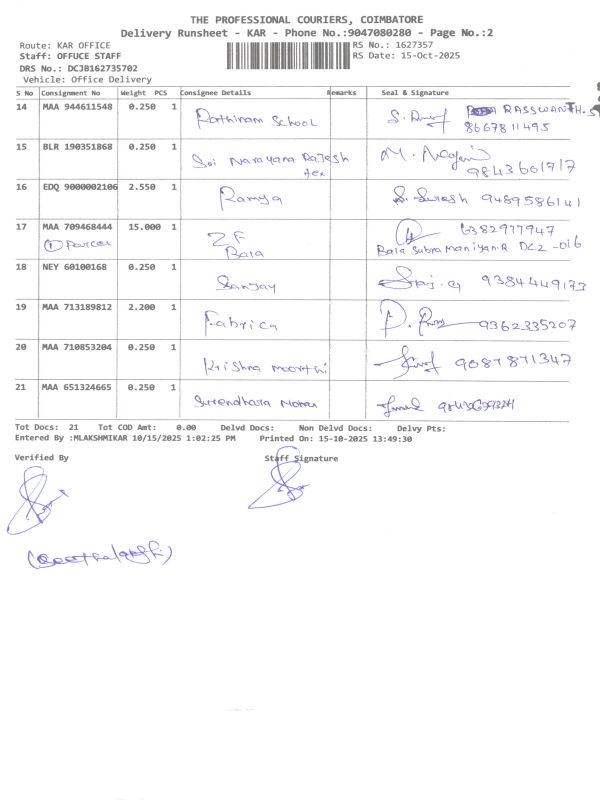 THE PROFESSIONAL COURIERS, COIMBATORE
Delivery Runsheet - KAR - Phone No.:9047080280 - Page No.:2
Route: KAR OFFICE RS No.: 1627357
Staff: OFFUCE STAFF RS Date: 15-Oct-2025
DRS No.: DCJB162735702
Vehicle: Office Delivery
S No Consignment No Weight PCS Consignee Details Remarks Seal & Signature
14 MAA 944611548 0.250 1 School RASSWANTH.S
8667811495
15 BLR 190351868 0.250 1 Sri Narayana Rajesh 9843661717
tex
16 EDQ 9000002106 2.550 1 Ramya S. Suresh 9489586141
17 MAA 709468444 15.000 1 ZF 6382977947
① Parcel Bala Bala Subramaniyan.R DC2-016
18 NEY 60100168 0.250 1 Sanjay 9384449173
19 MAA 713189812 2.200 1 Fabrica 9362335207
20 MAA 710853204 0.250 1 Krishna moorthi 9087871347
21 MAA 651324665 0.250 1
Tot Docs: 21 Tot COD Amt: 0.00 Delvd Docs: Non Delvd Docs: Delvy Pts:
Entered By :MLAKSHMIKAR 10/15/2025 1:02:25 PM Printed On: 15-10-2025 13:49:30
Verified By Staff Signature